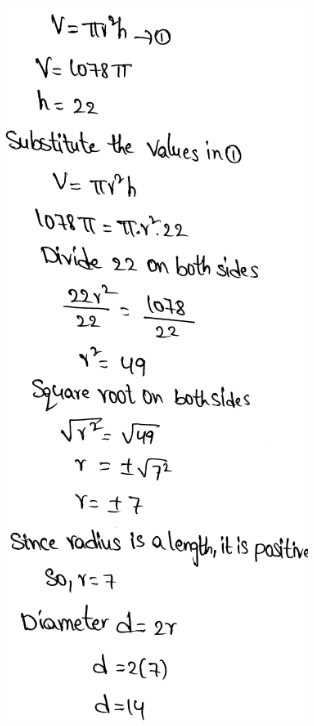 V = πr²h →①
V = 1078π
h = 22
Substitute the values in ①
V = πr²h
1078π = π.r².22
Divide 22 on both sides
22r²/22 = 1078/22
r² = 49
Square root on both sides
√r² = √49
r = ±√7²
r = ±7
Since radius is a length, it is positive
So, r = 7
Diameter d = 2r
d = 2(7)
d = 14